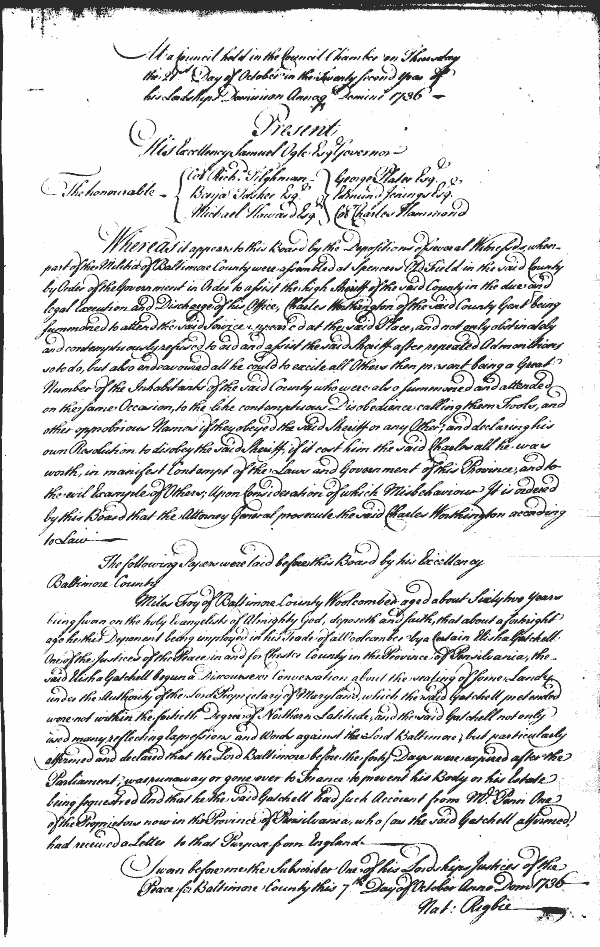 At a Council held in the Council Chamber on Thursday
the 21st Day of October in the Twenty second Year of
his Lordships Dominion Annoq Domini 1736
Present
His Excellency Samuel Ogle Esqr Governor
The honourable
Col Richd Tilghman
Benja Tasker Esqr
Michael Howard Esqr
George Plater Esqr
Edmund Jenings Esqr
Col Charles Hammond
Whereas it appears to this Board by the Depositions of several Witnesses, when
part of the Militia of Baltimore County were assembled at Spencers Old Field in the said County
by Order of the Government in Order to assist the high Sheriff of the said County in the due and
legal Execution and Discharge of his Office, Charles Worthington of the said County Gent being
summoned to attend the said Service appeared at the said Place, and not only obstinately
and contemptuously refused to aid and assist the said Sheriff after repeated Admonitions
so to do, but also endeavoured all he could to excite all Others then present being a Great
Number of the Inhabitants of the said County who were also summoned and attended
on the same Occasion, to the like contemptuous Disobedience calling them Fools, and
other opprobrious Names if they obeyed the said Sheriff or any Other, and declaring his
own Resolution to disobey the said Sheriff, if it cost him the said Charles all he was
worth, in manifest Contempt of the Laws and Government of this Province, and to
the evil Example of Others; Upon Consideration of which Misbehaviour It is ordered
by this Board that the Attorney General prosecute the said Charles Worthington according
to Law
The following Papers were laid before this Board by his Excellency
Baltimore County
Miles Foy of Baltimore County Woolcomber aged about Sixty two Years
being sworn on the holy Evangelists of Almighty God, deposeth and saith, that about a fortnight
ago he the Deponent being employed in his Trade of a Woolcomber by a Certain Elisha Gatchell
One of the Justices of the Peace in and for Chester County in the Province of Pensilvania, the
said Elisha Gatchell begun a Discourse or Conversation about the seating of some Lands
under the Authority of the Lord Proprietary of Maryland, which the said Gatchell pretended
were not within the fortieth Degree of Northern Latitude, and the said Gatchell not only
used many reflecting Expressions and Words against the Lord Baltimore; but particularly
affirmed and declared that the Lord Baltimore before the forty Days were expired after the
Parliament; was runaway or gone over to France to prevent his Body or his Estate
being sequestred And that he the said Gatchell had such Account from Mr Penn One
of the Proprietors now in the Province of Pensilvania, who (as the said Gatchell affirmed)
had received a Letter to that Purpose from England
Sworn before me the Subscriber One of his Lordships Justices of the
Peace for Baltimore County this 7th Day of October Anno Dom 1736
Nat: Rigbie